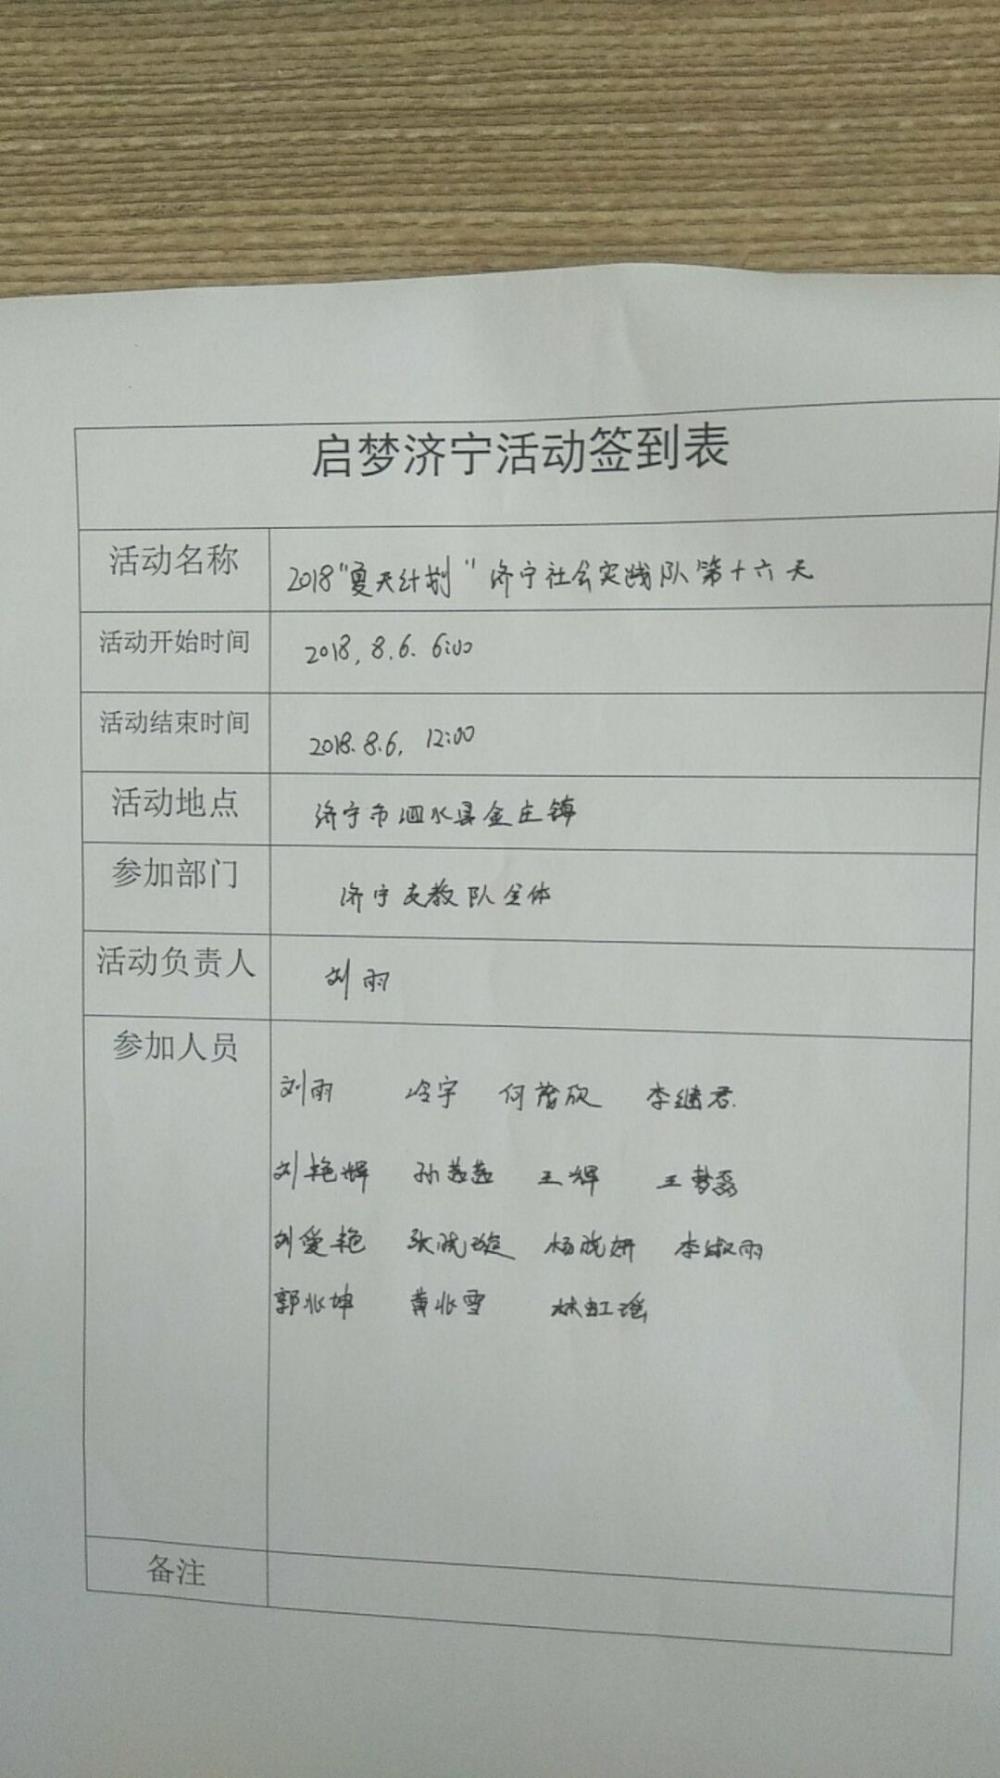 启梦济宁活动签到表
活动名称 2018"夏天计划"济宁社会实践队第十六天
活动开始时间 2018.8.6. 6:00
活动结束时间 2018.8.6. 12:00
活动地点 济宁市泗水县金庄镇
参加部门 济宁支教队全体
活动负责人 刘雨
参加人员
刘雨 冷宇 李继君
刘艳辉 孙蕊蕊 王辉 王梦磊
刘爱艳 张晓璇 杨晓妍 李淑雨
郭兆坤 黄兆雪 林虹瑶
备注